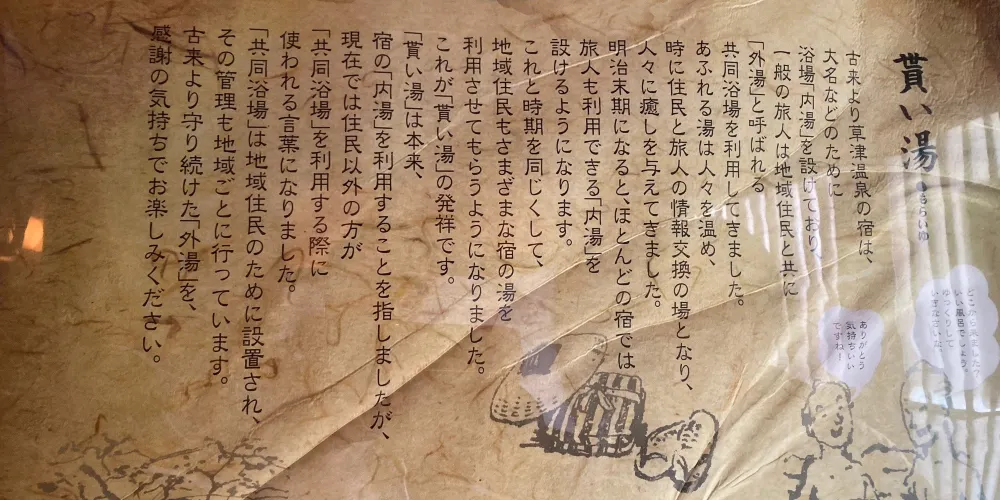 貰い湯 もらいゆ
古来より草津温泉の宿は、
大名などのために
浴場「内湯」を設けており、
一般の旅人は地域住民と共に
「外湯」と呼ばれる
共同浴場を利用してきました。
あふれる湯は人々を温め、
時に住民と旅人の情報交換の場となり、
人々に癒しを与えてきました。
明治末期になると、ほとんどの宿では
旅人も利用できる「内湯」を
設けるようになります。
これと時期を同じくして、
地域住民もさまざまな宿の湯を
利用させてもらうようになりました。
これが「貰い湯」の発祥です。
「貰い湯」は本来、
宿の「内湯」を利用することを指しましたが、
現在では住民以外の方が
「共同浴場」を利用する際に
使われる言葉になりました。
「共同浴場」は地域住民のために設置され、
その管理も地域ごとに行っています。
古来より守り続けた「外湯」を、
感謝の気持ちでお楽しみください。
どこから来ました?
いい風呂でしょう。
ゆっくりして
いきなさいな。
ありがとう
気持ちいい
ですね!